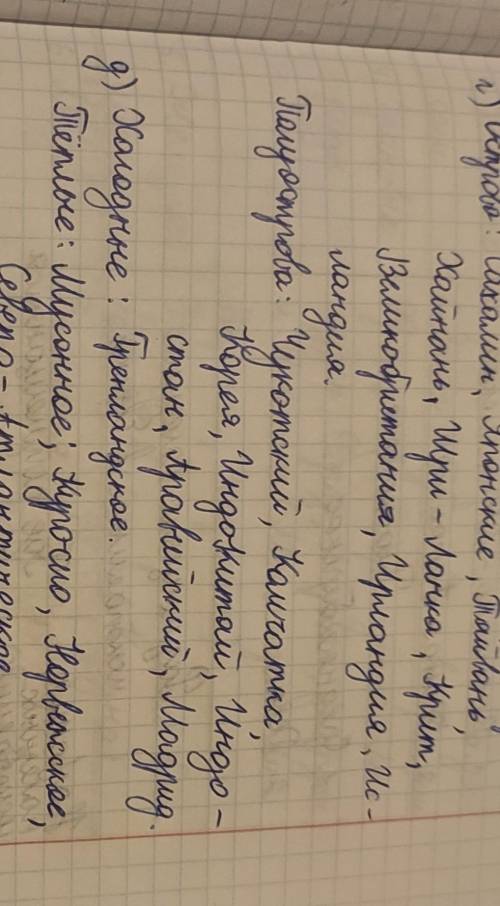 г) Острова: Сахалин, Японские, Тайвань,
Хайнань, Шри-Ланка, Крит,
Великобритания, Ирландия, Ис-
ландия.
Полуострова: Чукотский, Камчатка,
Корея, Индокитай, Индо-
стан, Аравийский, Мадрид.
д) Холодные: Гренландское.
Тёплые: Муссонное, Куросио, Норвежское,
Северо-Атлантическое